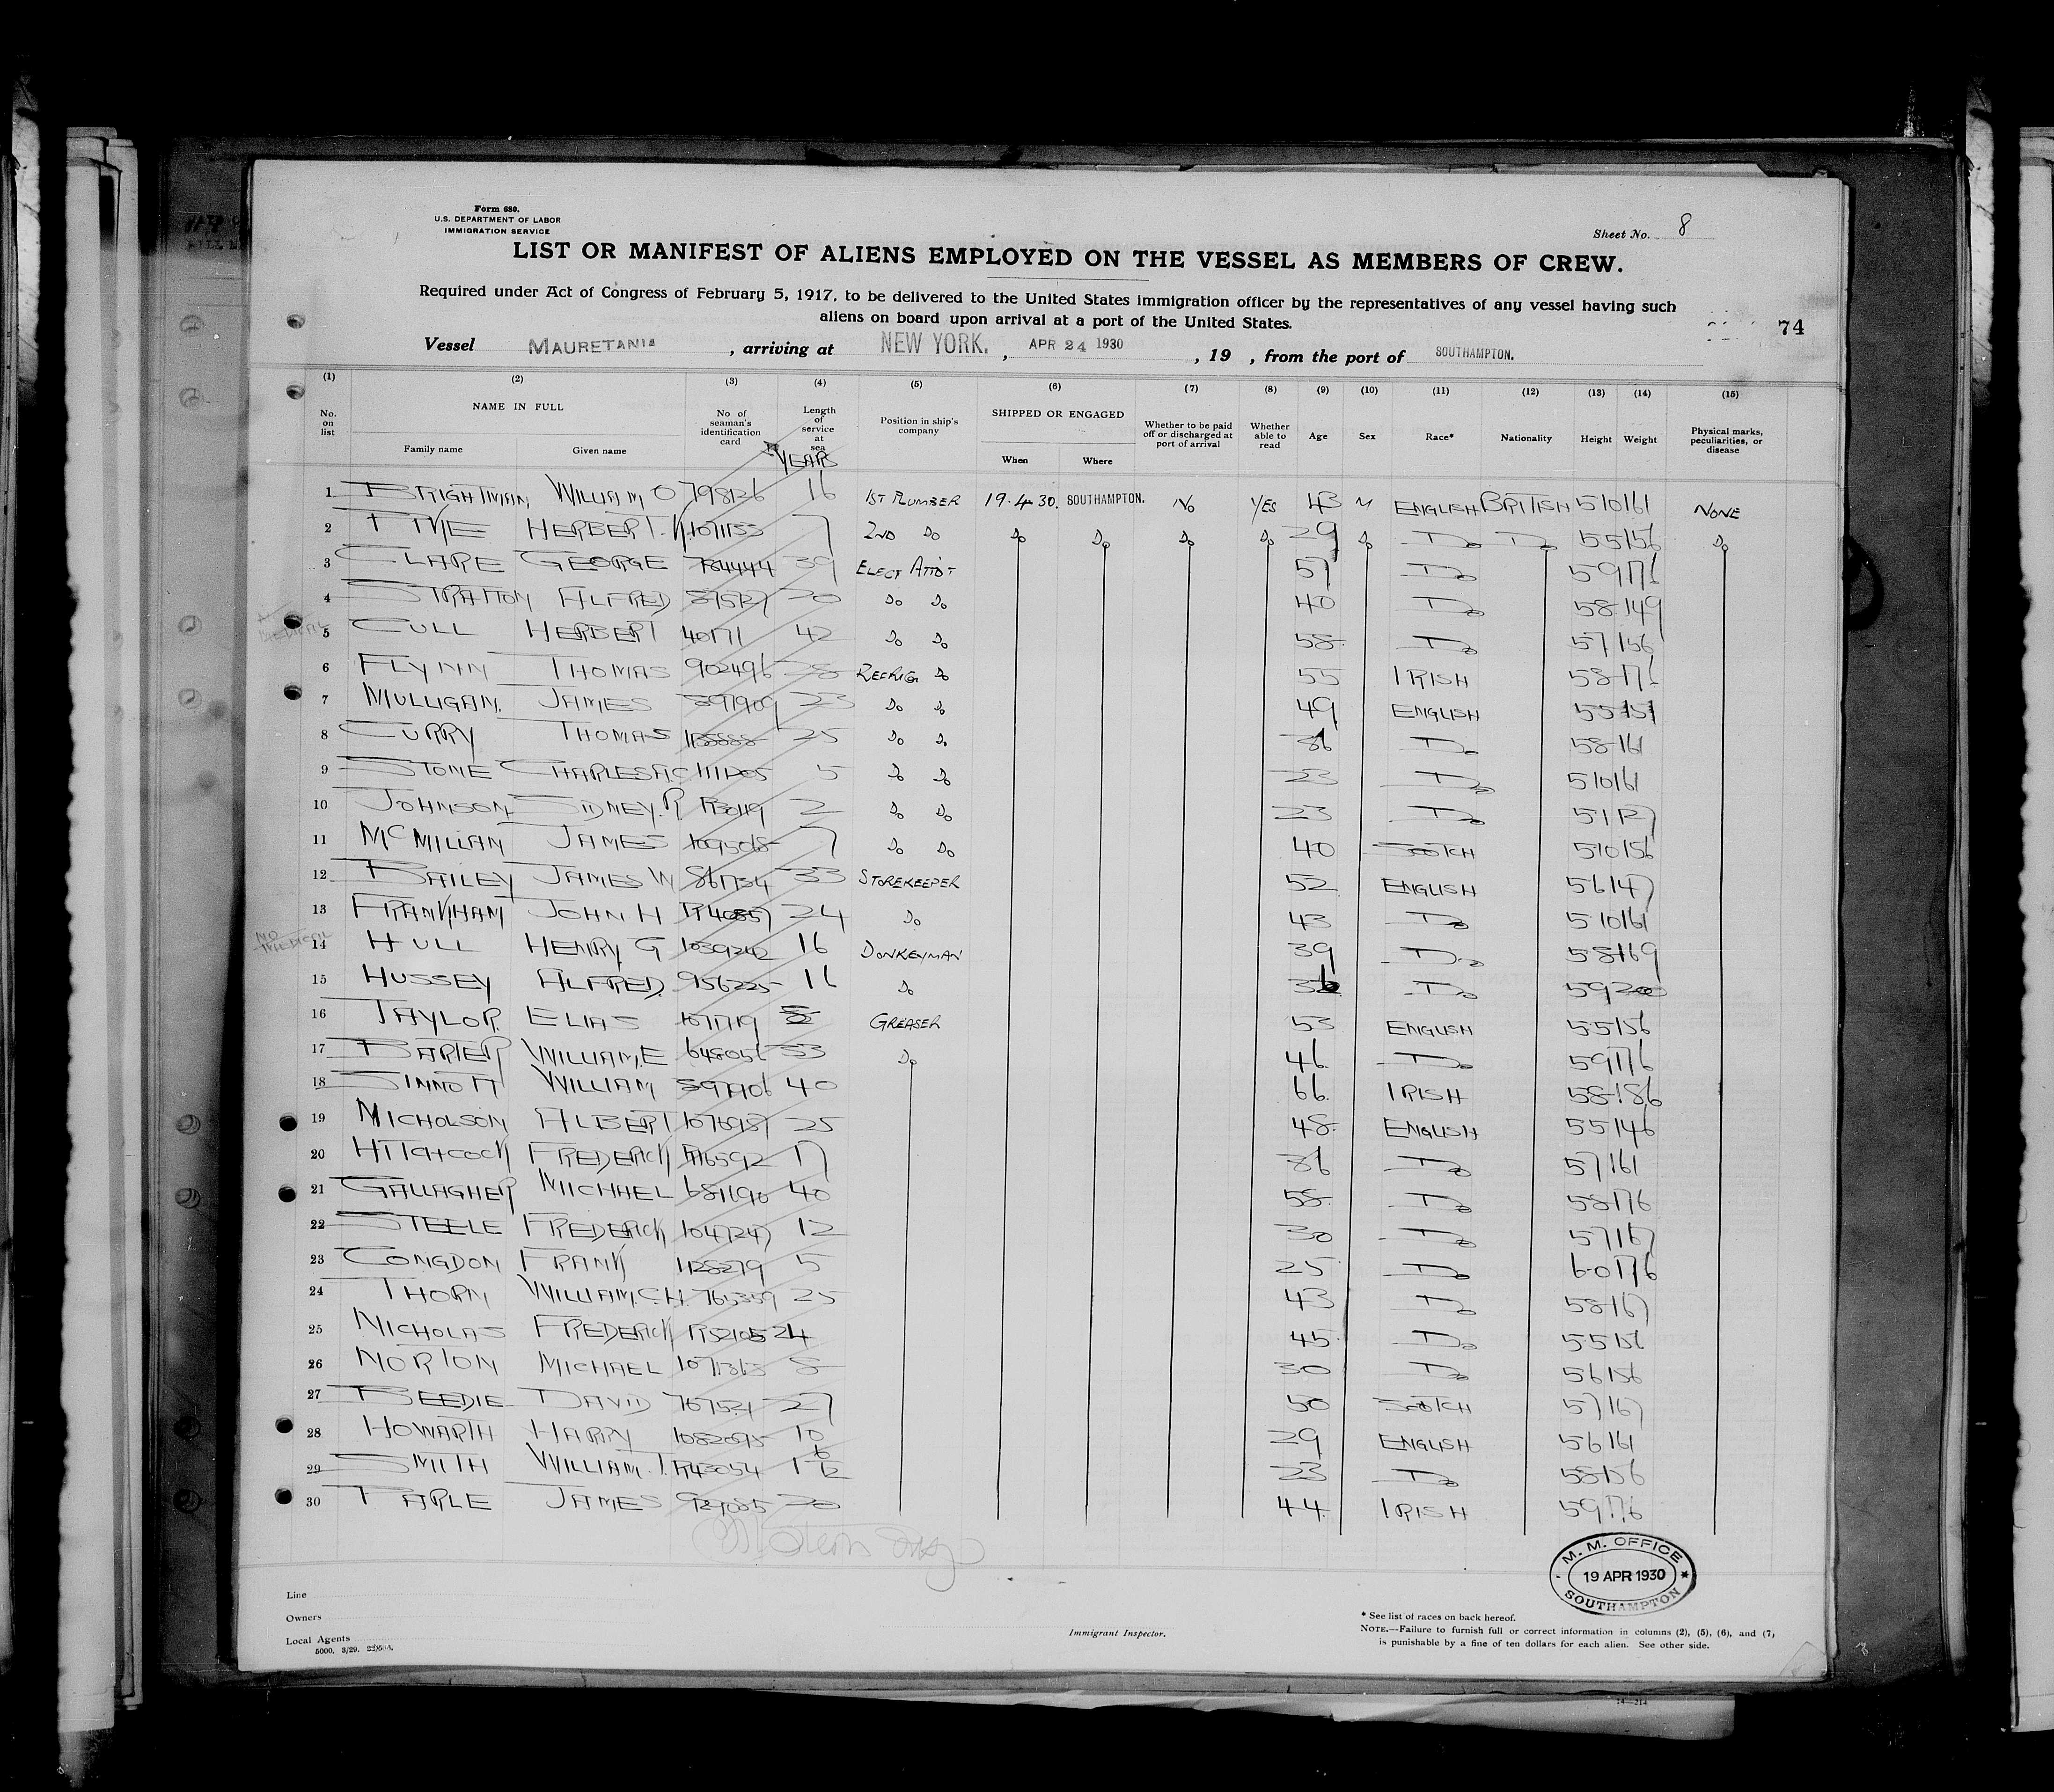 Form 680.
U.S. DEPARTMENT OF LABOR
IMMIGRATION SERVICE
Sheet No. 8
LIST OR MANIFEST OF ALIENS EMPLOYED ON THE VESSEL AS MEMBERS OF CREW.
Required under Act of Congress of February 5, 1917, to be delivered to the United States immigration officer by the representatives of any vessel having such
aliens on board upon arrival at a port of the United States.
74
Vessel MAURETANIA , arriving at NEW YORK. , APR 24 1930 , 19 , from the port of SOUTHAMPTON.
(1) (2) (3) (4) (5) (6) (7) (8) (9) (10) (11) (12) (13) (14) (15)
No. on list
NAME IN FULL
Family name Given name
No of seaman's identification card
Length of service at sea
YEARS
Position in ship's company
SHIPPED OR ENGAGED
When Where
Whether to be paid off or discharged at port of arrival
Whether able to read
Age Sex Race* Nationality Height Weight
Physical marks, peculiarities, or disease
1 BRIGHTMAN, WILLIAM O 798126 16 1ST PLUMBER 19.4.30. SOUTHAMPTON. NO YES 43 M ENGLISH BRITISH 5 10 161 NONE
2 HERBERT 7 2ND DO DO DO DO DO 29 DO DO DO 5 5 156 DO
3 CLARE GEORGE 39 ELECT ATTDT 57 DO 5 9 176
4 STRATTON ALFRED 20 DO DO 40 DO 5 8 149
5 CULL HERBERT 40171 42 DO DO 58 DO 5 7 156
6 FLYNN THOMAS 902496 28 REFRIG DO 55 IRISH 5 8 176
7 MULLIGAN. JAMES 23 DO DO 49 ENGLISH 5 5 151
8 CURRY THOMAS 25 DO DO 36 DO 5 8 161
9 STONE CHARLES 5 DO DO 23 DO 5 10 161
10 JOHNSON SIDNEY. R 2 DO DO 23 DO 5 1 127
11 MCMILLAN JAMES 7 DO DO 40 SCOTCH 5 10 156
12 BAILEY JAMES W 861734 33 STOREKEEPER 52 ENGLISH 5 6 147
13 FRANKHAM JOHN H 24 DO 43 DO 5 10 161
NO MEDICAL
14 HULL HENRY G 1039242 16 DONKEYMAN 39 DO 5 8 169
15 HUSSEY ALFRED. 956225 16 DO 36 DO 5 9 200
16 TAYLOR. ELIAS GREASER 53 ENGLISH 5 5 156
17 BARBER WILLIAM.E 33 DO 46 DO 5 9 176
18 SINNOTT WILLIAM 40 66. IRISH 5 8 186
19 NICHOLSON ALBERT 25 48 ENGLISH 5 5 146
20 HITCHCOCK FREDERICK 17 36 DO 5 7 161
21 GALLAGHER MICHAEL 681690 40 58 DO 5 8 176
22 STEELE FREDERICK 1047247 12 30 DO 5 7 167
23 CONGDON FRANK 1128279 5 25 DO 6-0 176
24 THORN WILLIAM.C.H. 765359 25 43 DO 5 8 167
25 NICHOLAS FREDERICK 24 45 DO 5 5 156
26 NORTON MICHAEL 8 30 DO 5 6 156
27 BEEDIE DAVID 27 50 SCOTCH 5 7 167
28 HOWARTH HARRY 1082095 10 29 ENGLISH 5 6 161
29 SMITH WILLIAM.T. R43054 23 DO 5 8 156
30 JAMES 20 44. IRISH 5 9 176
M. M. OFFICE
19 APR 1930
SOUTHAMPTON
Line
Owners
Local Agents
5000. 3/29.
Immigrant Inspector.
* See list of races on back hereof.
NOTE.—Failure to furnish full or correct information in columns (2), (5), (6), and (7)
is punishable by a fine of ten dollars for each alien. See other side.
14—214